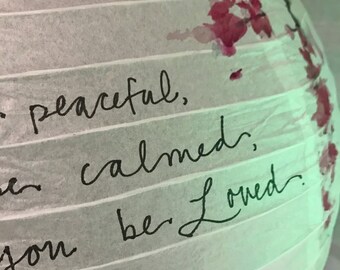 peaceful,
be calmed,
you be Loved.